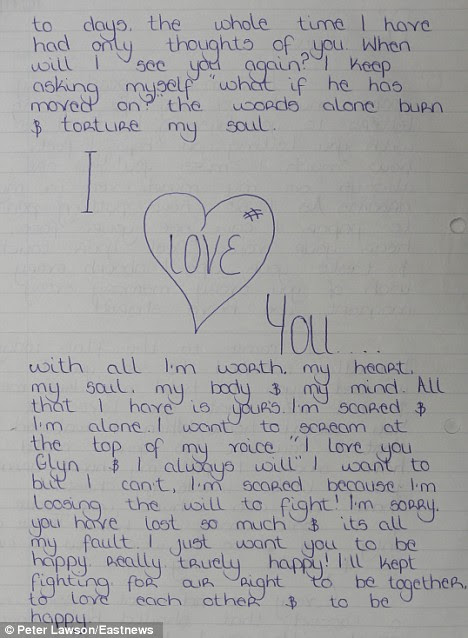 to days. the whole time I have
had only thoughts of you. When
will I see you again? I keep
asking myself "what if he has
moved on?" the words alone burn
& torture my soul.
I
LOVE
You....
with all I'm worth. my heart.
my soul. my body & my mind. All
that I have is yours. I'm scared &
I'm alone. I want to scream at
the top of my voice "I love you
Glyn & I always will" I want to
but I can't, I'm scared because I'm
loosing the will to fight! I'm sorry.
you have lost so much & its all
my fault. I just want you to be
happy. Really, truely happy! I'll kept
fighting for our right to be together.
to love each other & to be
happy.
© Peter Lawson/Eastnews